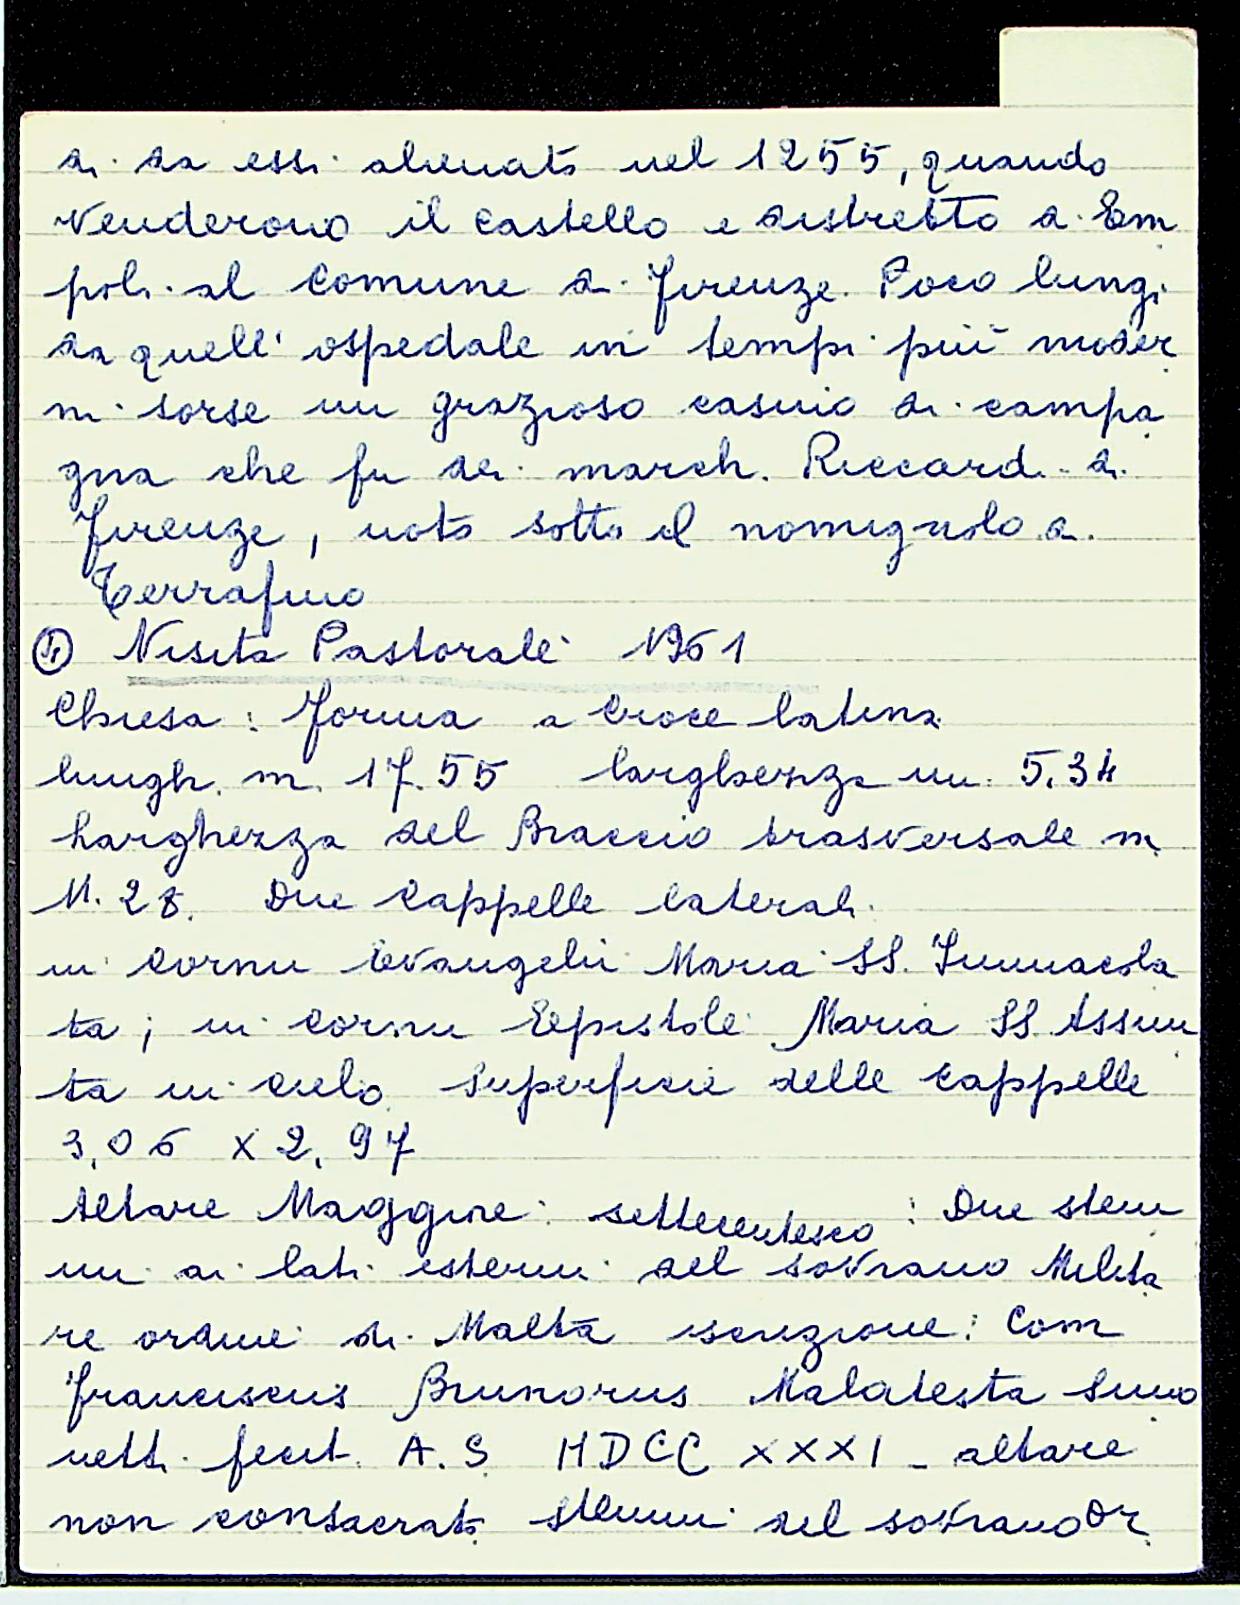 di da essi alienato nel 1255, quando
venderono il castello e distretto di Em
poli al Comune di Firenze. Poco lungi
da quell' ospedale in tempi più moder
ni sorse un grazioso casino di campa
gna che fu dei march. Riccardi di
Firenze, noto sotto il nomignolo di
Terrafino
Visita Pastorale 1961
Chiesa: Forma a Croce latina
lungh. m. 17.55 larghezza m. 5.34
Larghezza del Braccio trasversale m
11.28. Due Cappelle laterali
in Cornu Evangelii Maria SS. Immacola
ta; in Cornu Epistole Maria SS Assun
ta in cielo superficie delle Cappelle
3,06 x 2,97
Altare Maggiore: settecentesco: Due stem
mi ai lati esterni del sovrano Milita
re ordine di Malta iscrizione: Com
Franciscus Brunorus Malatesta
fecit. A.S MDCC XXXI - altare
non consacrato stemmi del sovrano Or